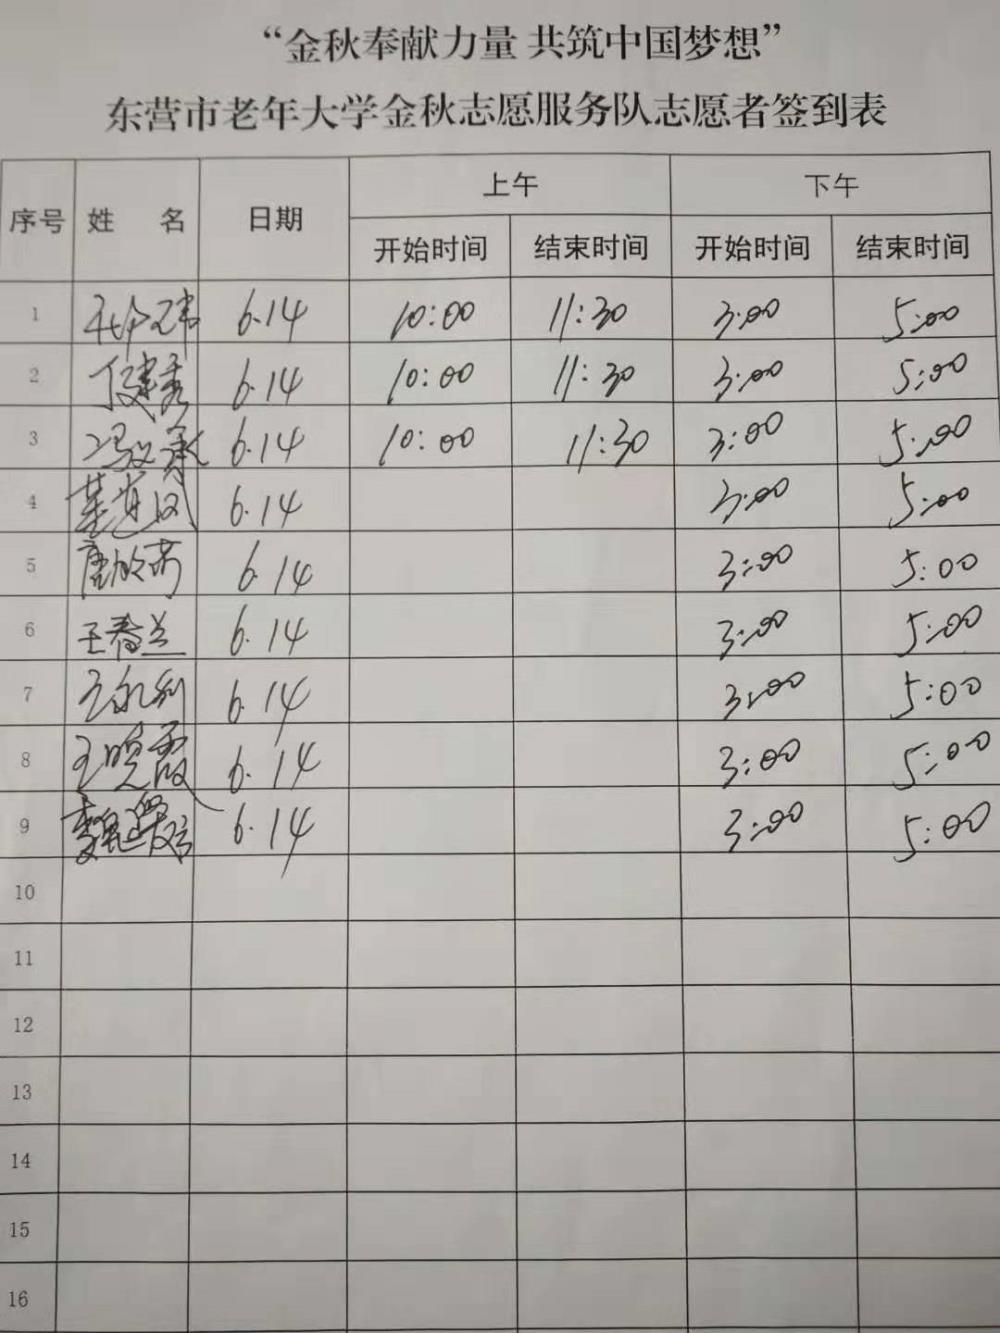 “金秋奉献力量 共筑中国梦想”
东营市老年大学金秋志愿服务队志愿者签到表
序号 姓 名 日期 上午 下午
开始时间 结束时间 开始时间 结束时间
1 6.14 10:00 11:30 3:00 5:00
2 6.14 10:00 11:30 3:00 5:00
3 6.14 10:00 11:30 3:00 5:00
4 6.14 3:00 5:00
5 6.14 3:00 5:00
6 王春兰 6.14 3:00 5:00
7 王永利 6.14 3:00 5:00
8 王晓霞 6.14 3:00 5:00
9 6.14 3:00 5:00
10
11
12
13
14
15
16